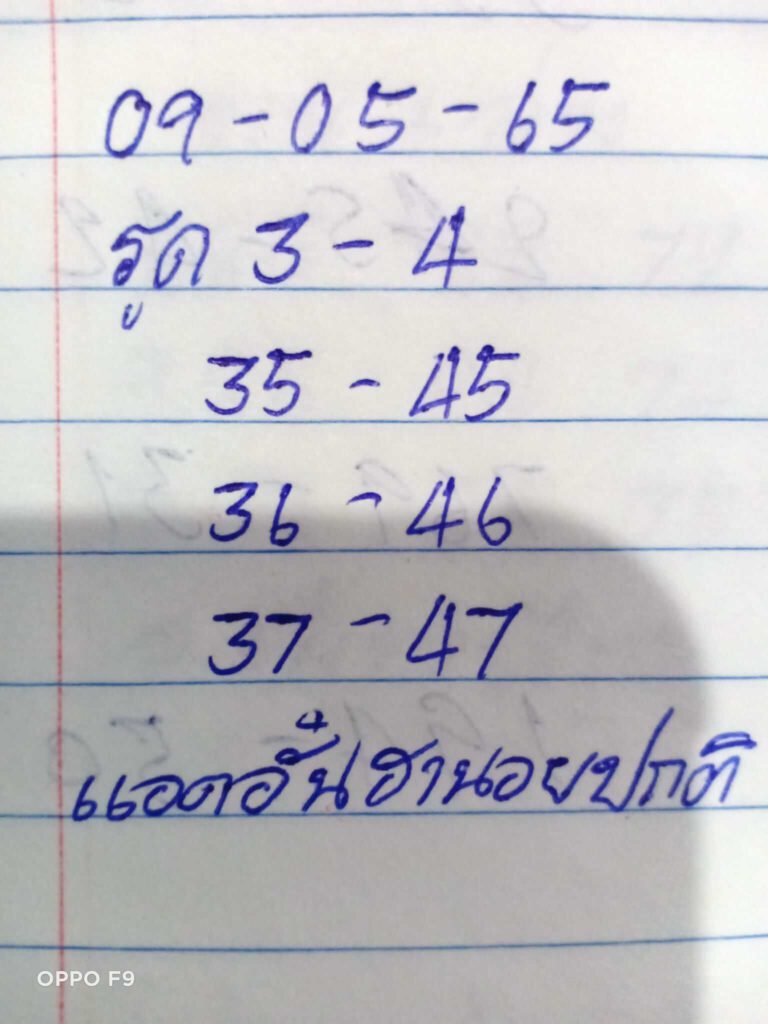 09-05-65
รูด 3-4
35-45
36-46
37-47
แอดอั๋นฮานอยปกติ
OPPO F9